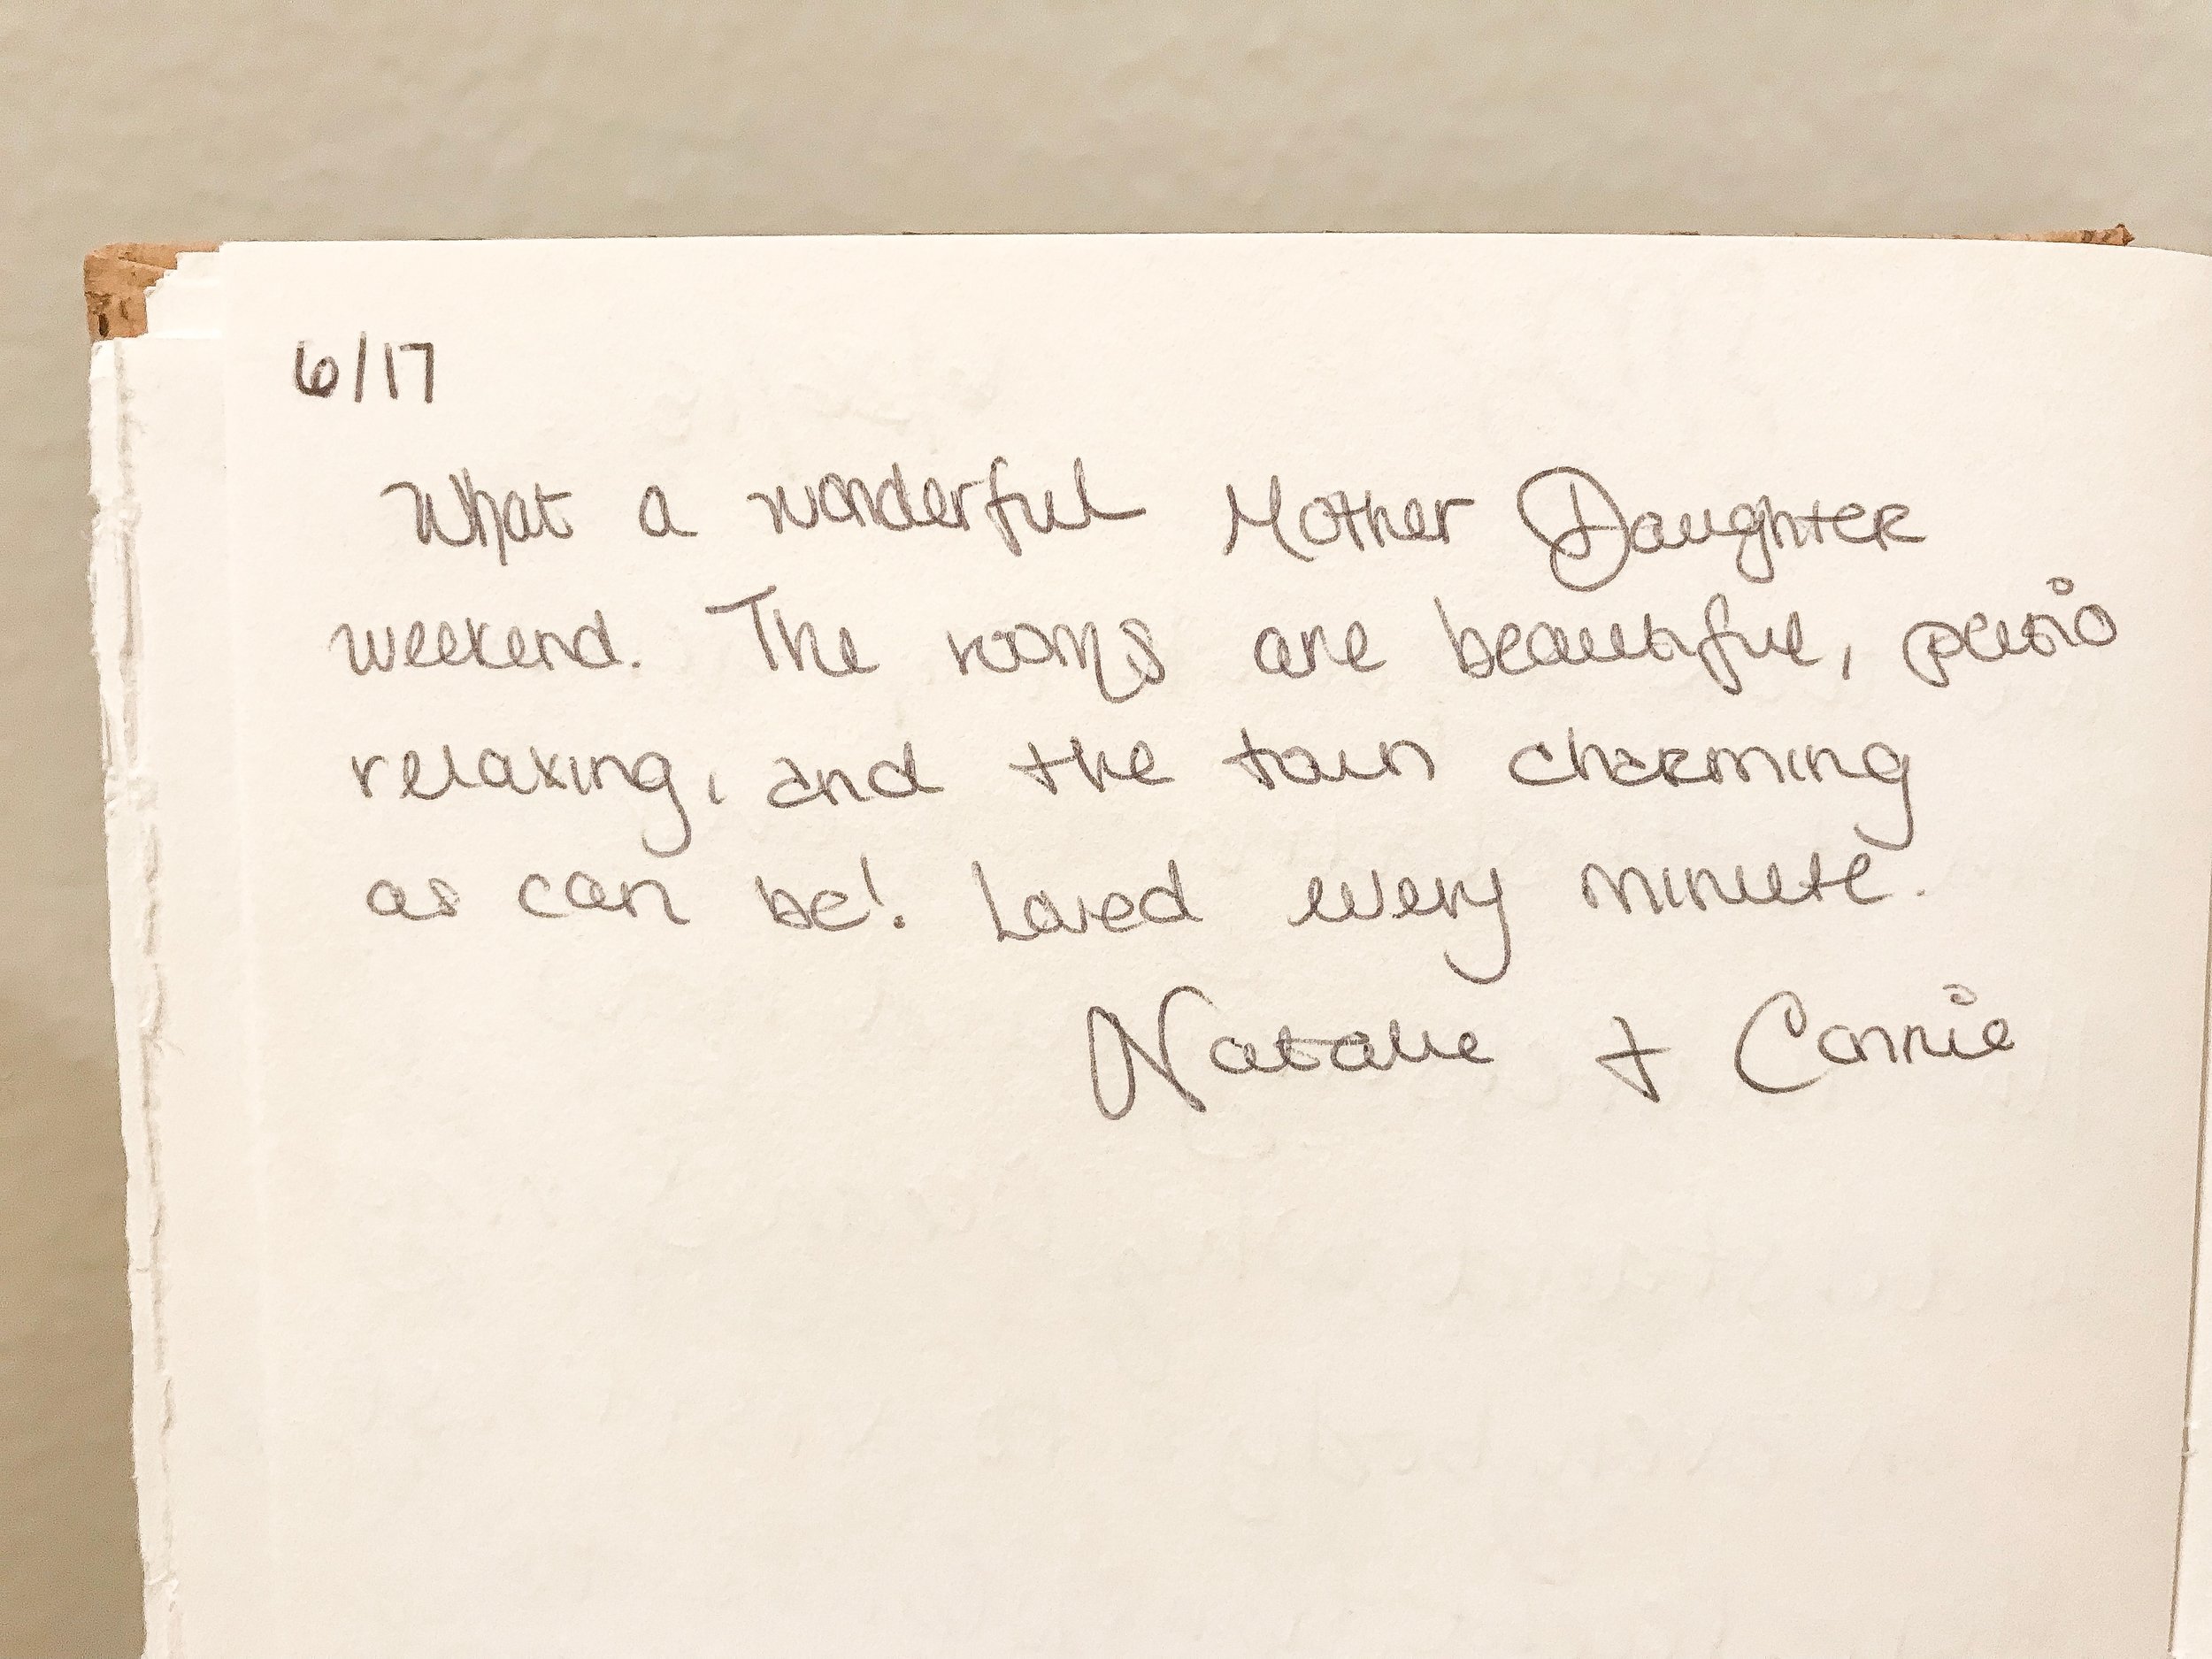 6/17
What a wonderful Mother Daughter
weekend. The rooms are beautiful, patio
relaxing, and the town charming
as can be! Loved every minute.
Natalie + Connie